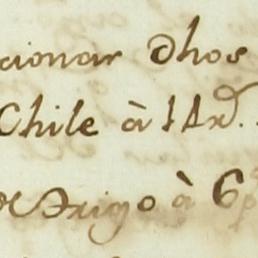 cionar dhos
Chile à 14 rd.
Trigo à 6 p